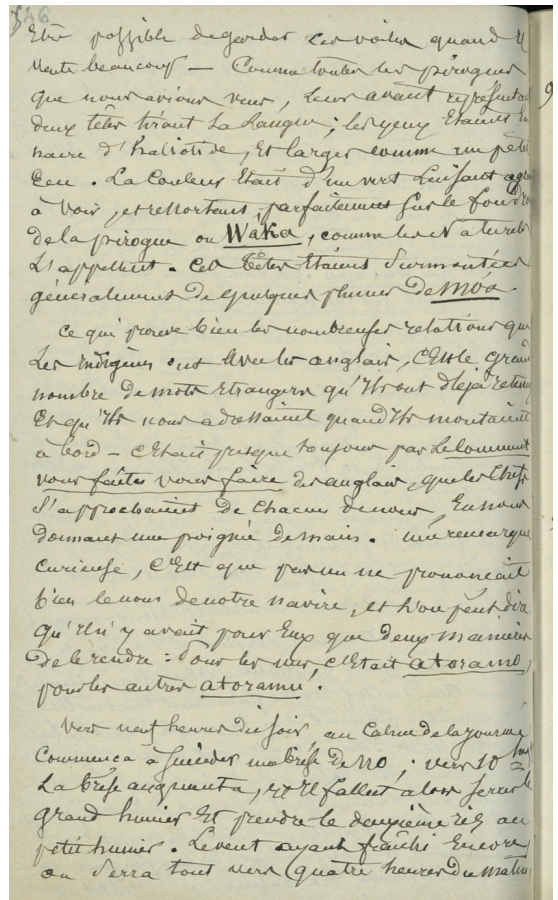 246
Etre possible de garder ces voiles quand il
vente beaucoup — Comme toutes les pirogues
que nous avions vues, leurs avant représentait
deux têtes tirant la langue ; les yeux étaient en
nacre d'haliotide, et larges comme un petit
Ecu. La Couleur était d'un vert luisant
à voir, et ressortant parfaitement sur le fond
de la pirogue ou Wáka, comme les Naturels
l'appellent. Ces Têtes étaient surmontées
généralement de quelques plumes de móa.
Ce qui prouve bien les nombreuses relations que
les indigènes ont avec les anglais, c'est le grand
nombre de mots étrangers qu'ils ont déjà retenu
Et qu'ils nous adressaient quand ils montaient
à bord — c'était presque toujours par le comment
vous faites vous faire des anglais, que les chefs
s'approchaient de chacun de nous, en nous
donnant une poignée de main. une remarque
curieuse, c'est que pas un ne prononçait
bien le nom de notre navire, et l'on peut dire
qu'il n'y avait pour eux que deux manières
de le rendre : Pour les uns c'était atoramo,
pour les autres atoramu.
Vers neuf heures du soir, au Calme de la journée
Commença à succéder une brise de NO ; vers 10 h
La brise augmenta, et il fallut alors serrer le
grand hunier et prendre le deuxième ris au
petit hunier. Le vent ayant fraîchi encore
on serra tout vers quatre heures du matin